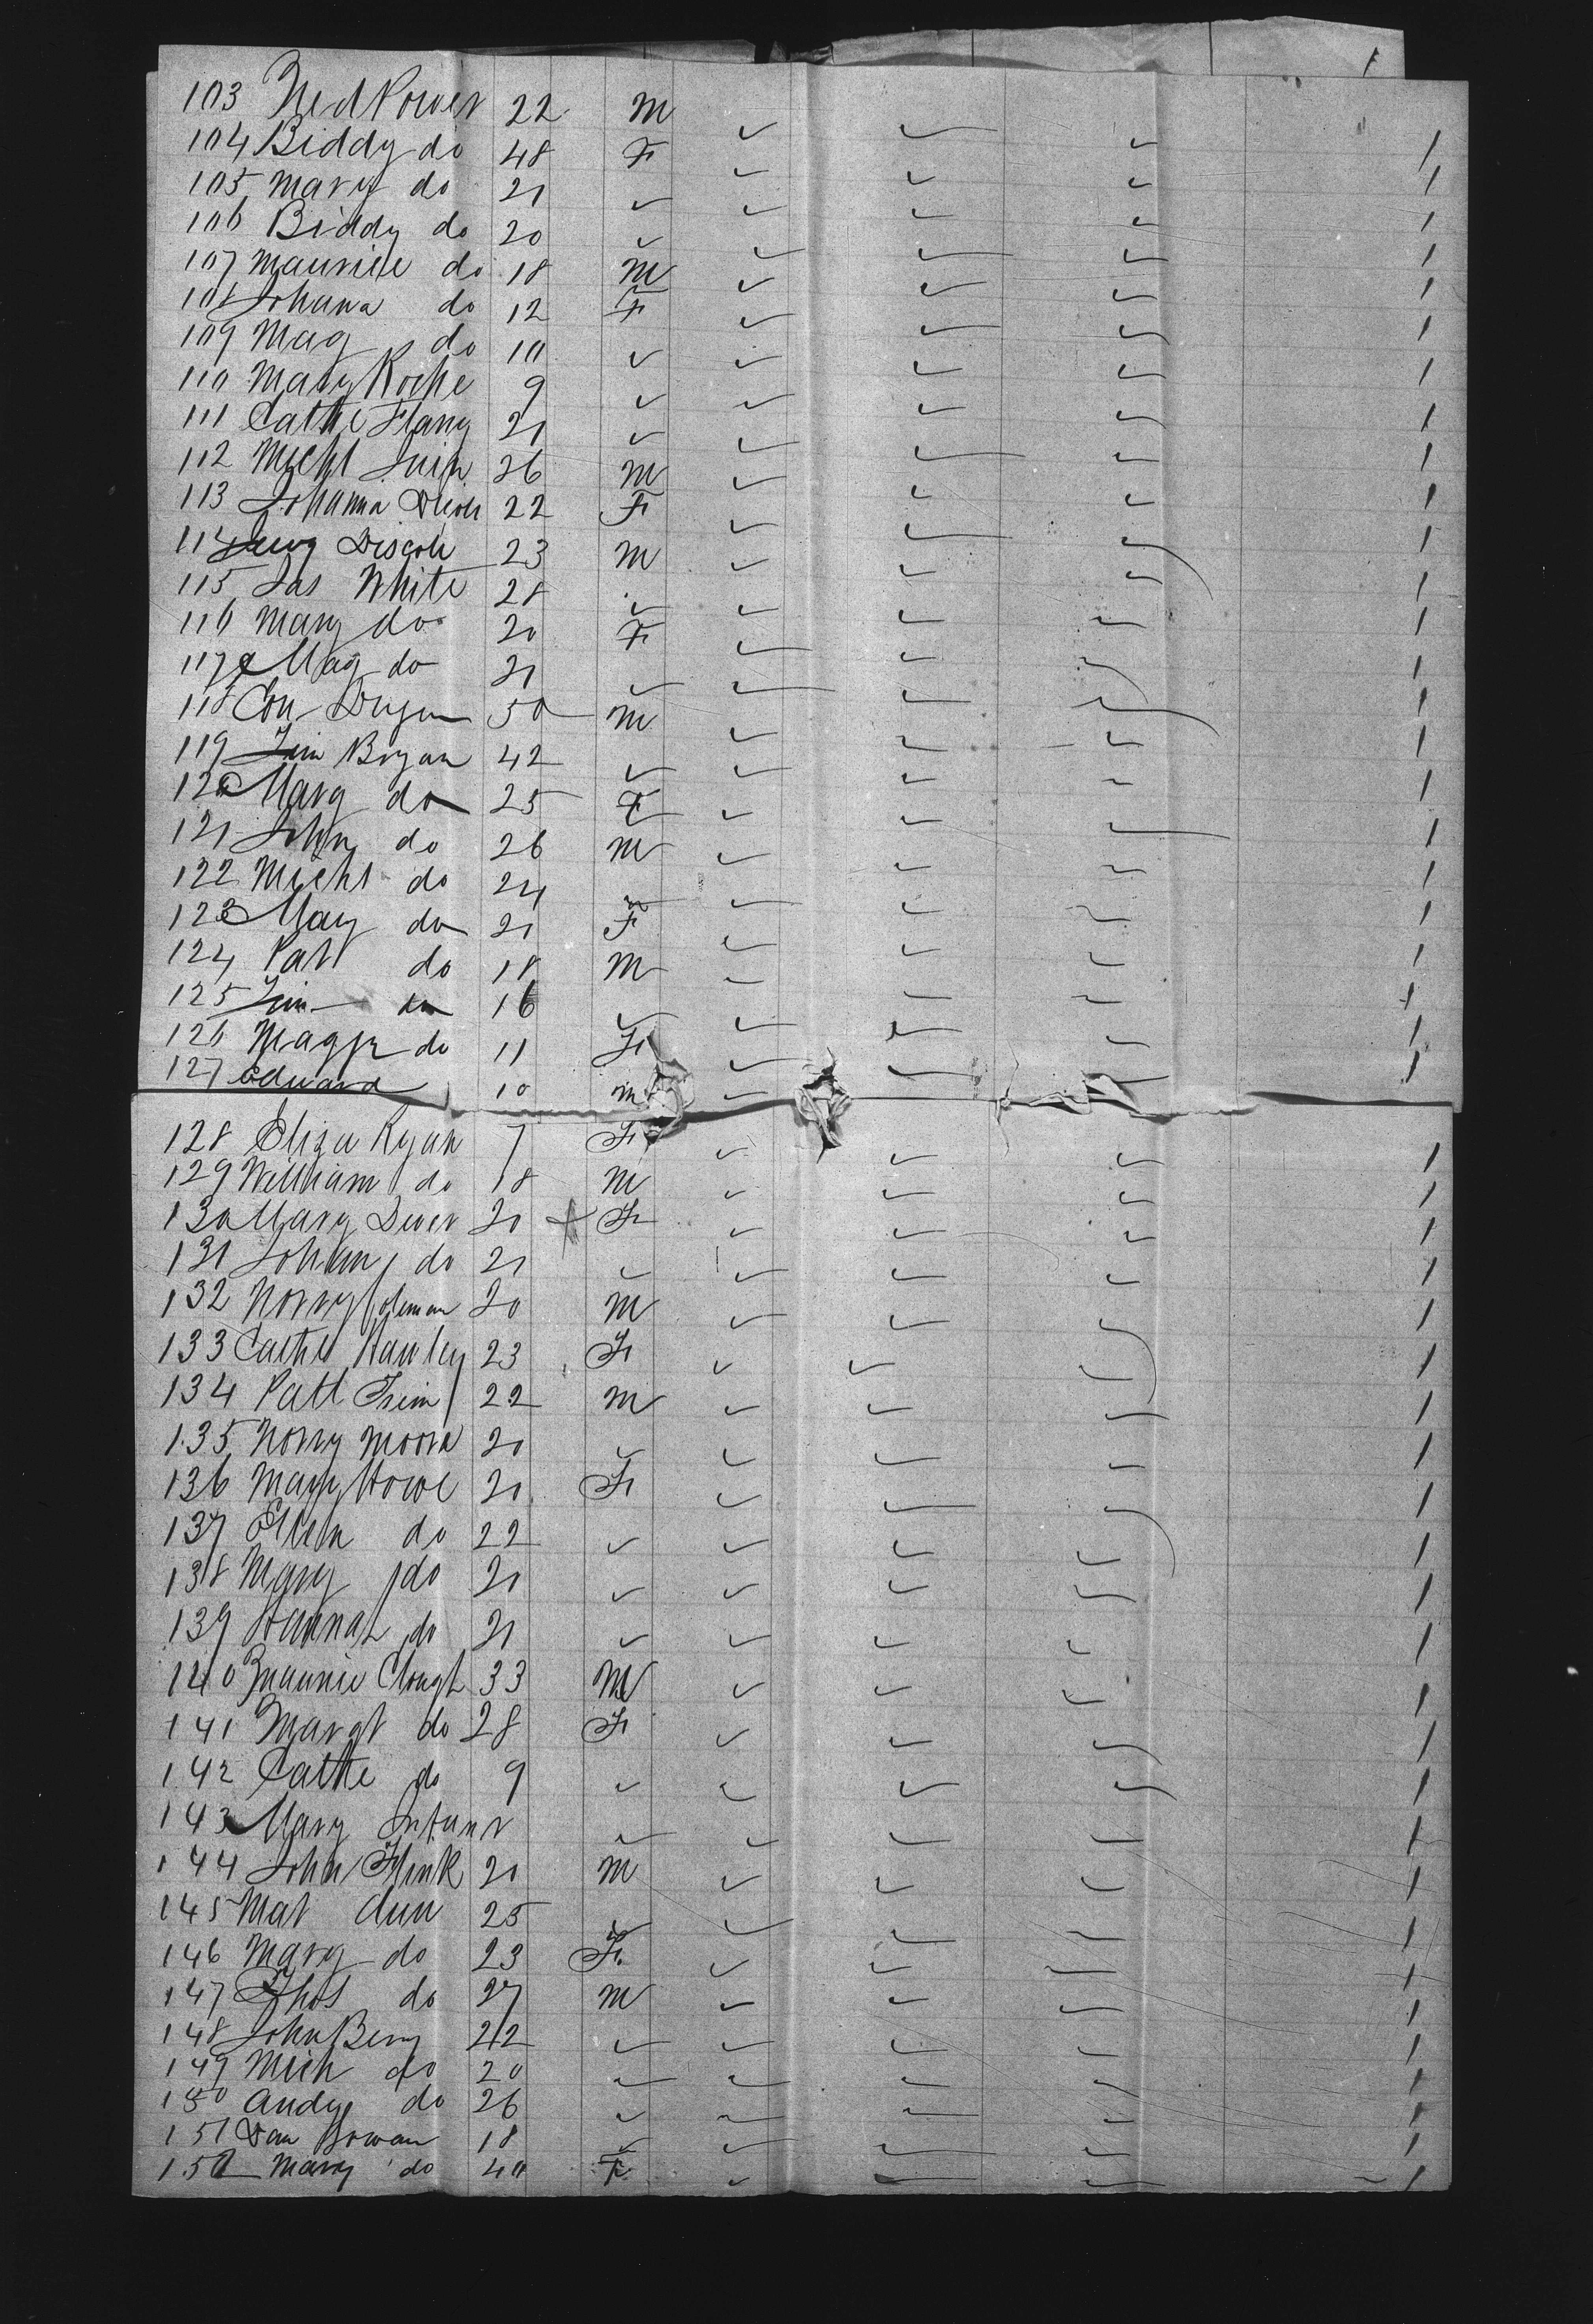 103 Ned Power 22 M
104 Biddy do 48 F ✓ ✓ ✓ 1
105 Mary do 21 ✓ ✓ ✓ ✓ 1
106 Biddy do 20 ✓ ✓ ✓ ✓ 1
107 Maurice do 18 M ✓ ✓ ✓ 1
108 Johana do 12 F ✓ ✓ ✓ 1
109 Mag do 10 ✓ ✓ ✓ ✓ 1
110 Mary Roche 9 ✓ ✓ ✓ ✓ 1
111 Cathe Flany 21 ✓ ✓ ✓ ✓ 1
112 Michl 26 M ✓ ✓ ✓ 1
113 Johanna 22 F ✓ ✓ ✓ 1
114 Discole 23 M ✓ ✓ ✓ 1
115 Jas White 28 ✓ ✓ ✓ ✓ 1
116 Mary do 20 F ✓ ✓ ✓ 1
117 Mag do 21 ✓ ✓ ✓ ✓ 1
118 Con 50 M ✓ ✓ ✓ 1
119 Jim Bryan 42 ✓ ✓ ✓ ✓ 1
120 Mary do 25 F ✓ ✓ ✓ 1
121 John do 26 M ✓ ✓ ✓ 1
122 Michl do 24 ✓ ✓ ✓ ✓ 1
123 Mary do 21 F ✓ ✓ ✓ 1
124 Pat do 18 M ✓ ✓ ✓ 1
125 Jim do 16 ✓ ✓ ✓ ✓ 1
126 do 11 F ✓ ✓ ✓ 1
127 Edward 10 M ✓ ✓ ✓ 1
128 Eliza Ryan 7 F ✓ ✓ ✓ 1
129 William do 18 M ✓ ✓ ✓ 1
130 Mary Dwer 20 + F ✓ ✓ ✓ 1
131 Johan do 21 ✓ ✓ ✓ ✓ 1
132 Norry Coleman 20 M ✓ ✓ ✓ 1
133 Cathe Hawley 23 F ✓ ✓ ✓ 1
134 Patt 22 M ✓ ✓ ✓ 1
135 Norry Moore 20 ✓ ✓ ✓ ✓ 1
136 Mary Howe 20 F ✓ ✓ ✓ 1
137 Ellen do 22 ✓ ✓ ✓ ✓ 1
138 Mary do 20 ✓ ✓ ✓ ✓ 1
139 Hannah do 21 ✓ ✓ ✓ ✓ 1
140 Maurice Clough 33 M ✓ ✓ ✓ 1
141 Margt do 28 F ✓ ✓ ✓ 1
142 Cathe do 9 ✓ ✓ ✓ ✓ 1
143 Mary Infant ✓ ✓ ✓ ✓ 1
144 John Flink 20 M ✓ ✓ ✓ 1
145 Mat dun 25 ✓ ✓ ✓ ✓ 1
146 Mary do 23 F ✓ ✓ ✓ 1
147 Thos do 27 M ✓ ✓ ✓ 1
148 John Berry 22 ✓ ✓ ✓ ✓ 1
149 Mich do 20 ✓ ✓ ✓ ✓ 1
150 Andy do 26 ✓ ✓ ✓ ✓ 1
151 Dan Bowan 18 ✓ ✓ ✓ ✓ 1
152 Mary do 40 F ✓ ✓ ✓ 1